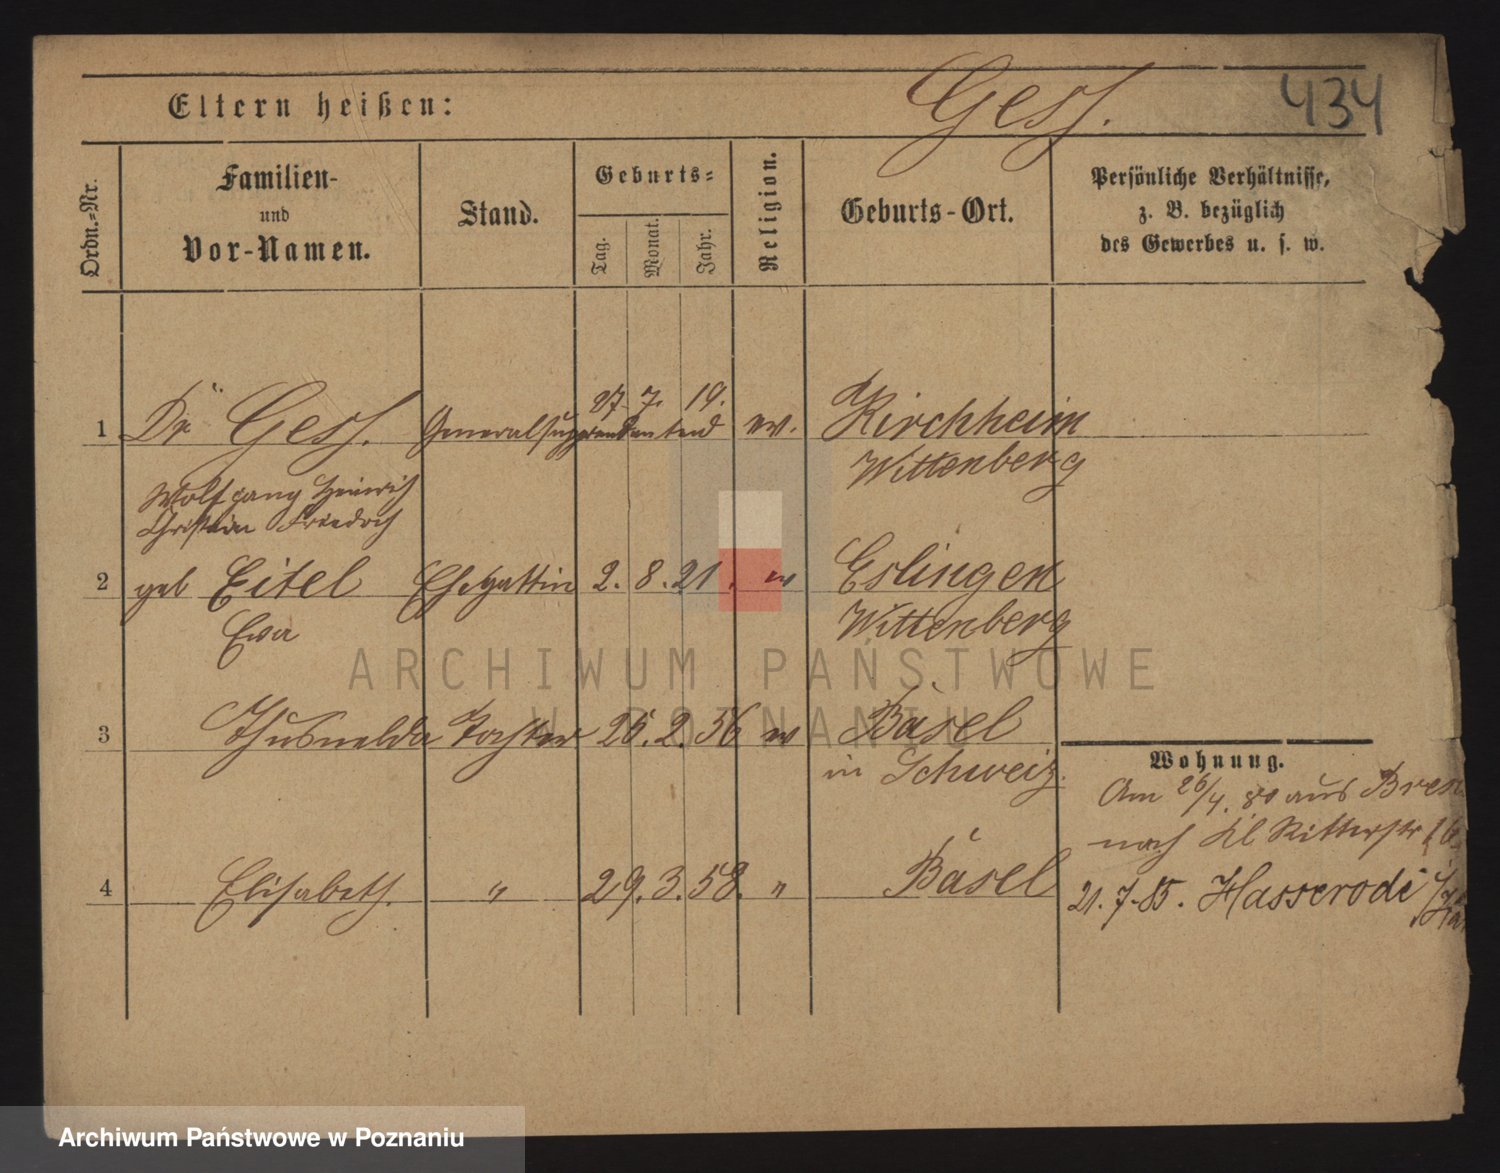 Eltern heißen: Gess. 434
Ordn.-Nr.
Familien-
und
Vor-Namen.
Stand.
Geburts-
Tag. Monat. Jahr.
Religion.
Geburts-Ort.
Persönliche Verhältnisse,
z. B. bezüglich
des Gewerbes u. s. w.
27. 7. 19.
1 Dr Gess. ev. Kirchheim
Wittenberg
Wolfgang Heinrich
Christian Friedrich
2 geb Eitel Ehegattin 2. 8. 21. ev Eslingen
Eva Wittenberg
ARCHIWUM PAŃSTWOWE
W POZNANIU
3 Thusnelda Tochter 2. 56 ev Basel
in Schweiz.
Wohnung.
Am 26/4. 80 aus
nach Kl Ritterstr
4 Elisabeth. " 29. 3. 58. " Basel
21. 7. 85. Hasserode
Archiwum Państwowe w Poznaniu